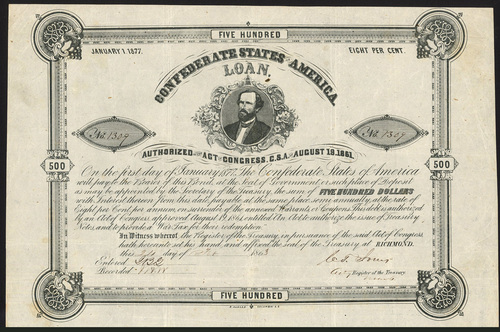 FIVE HUNDRED
JANUARY 1 1877.
EIGHT PER CENT.
CONFEDERATE STATES AMERICA.
LOAN
No. 1309
No. 1309
AUTHORIZED ACT CONGRESS, C.S.A. AUGUST 19, 1861.
500
500
On the first day of January, 1877, The Confederate States of America
will pay to the Bearer of this Bond, at the Seat of Government or such place of Deposit
as may be appointed by the Secretary of the Treasury, the sum of FIVE HUNDRED DOLLARS
with Interest thereon from this date, payable at the same place, semi annually, at the rate of
Eight per Cent per annum, on surrender of the annexed Warrants, or Coupons. This debt is authorized
by an Act of Congress approved August 19, 1861, entitled An Act to authorize the issue of Treasury
Notes, and to provide a War Tax for their redemption.
In Witness whereof, the Register of the Treasury, in pursuance of the said Act of Congress,
hath hereunto set his hand, and affixed the seal of the Treasury, at RICHMOND,
this day of 1863
Entered
Recorded
Register of the Treasury
FIVE HUNDRED